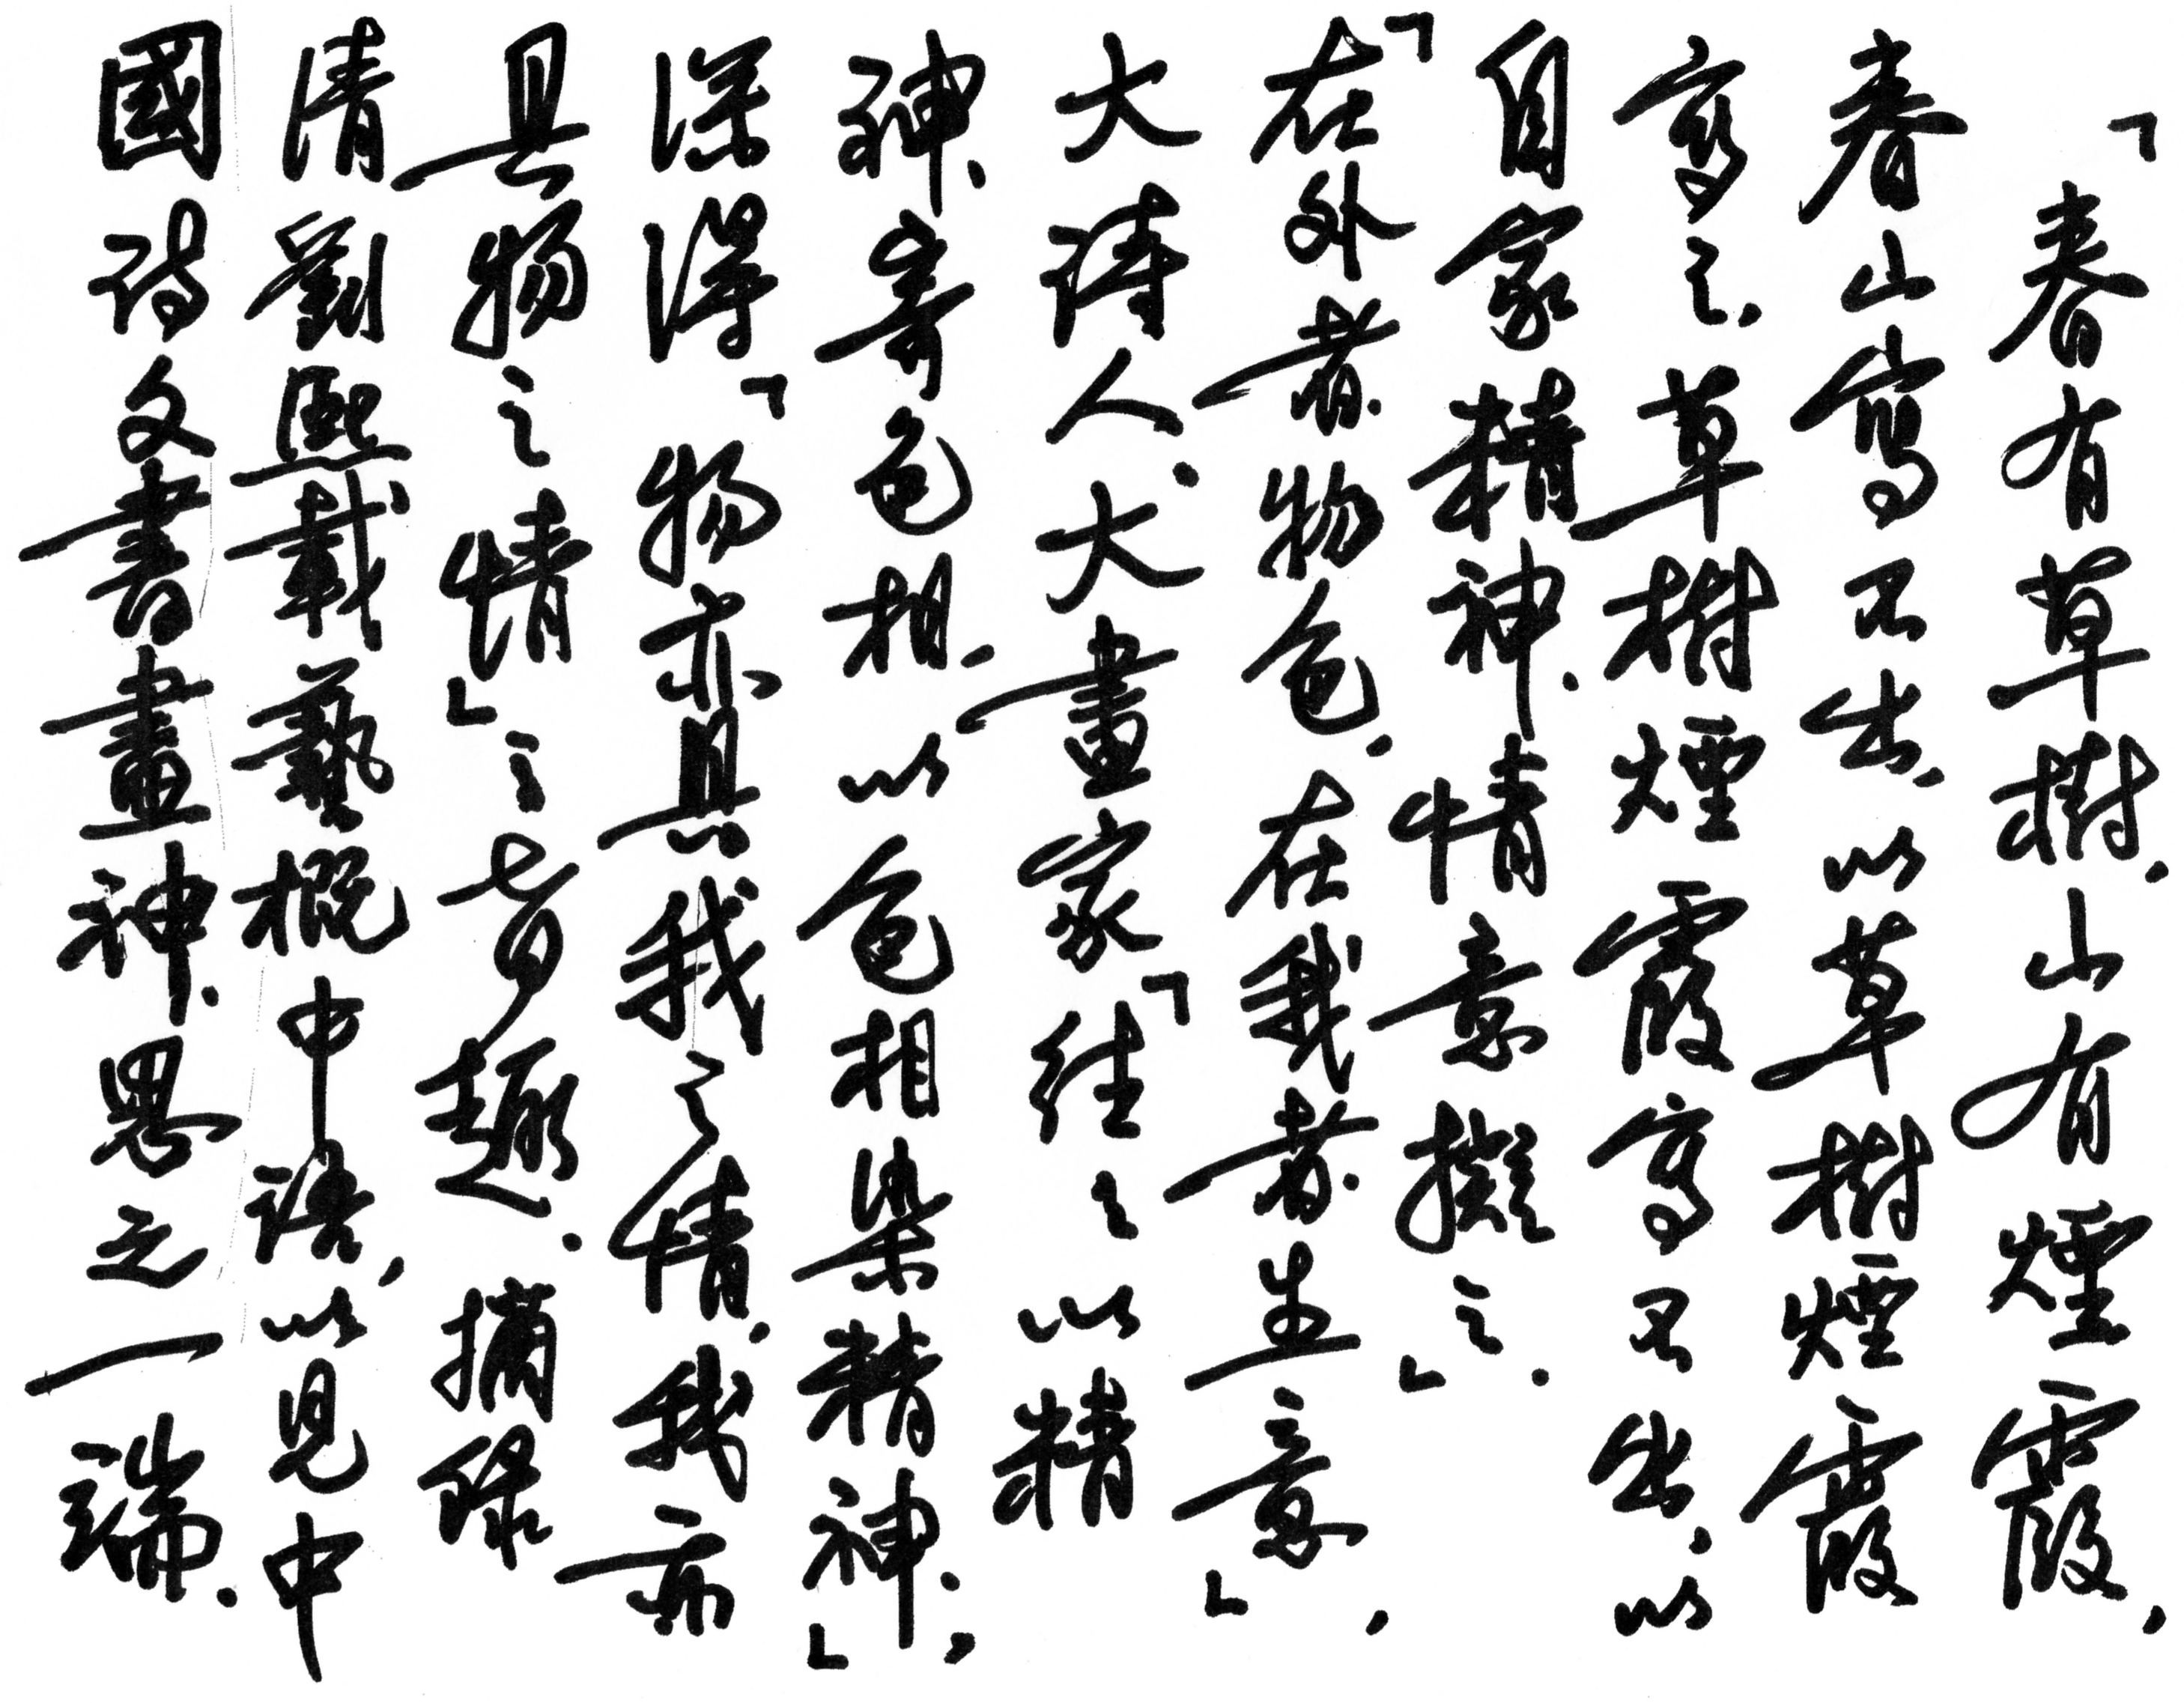 「春有草樹，山有煙霞，
春山寫不出，以草樹煙霞
寫之，草樹煙霞寫不出，以
自家精神、情意擬之」。
「在外者物色，在我者生意」，
大詩人、大畫家「往往以精
神寄色相，以色相染精神」，
深得「物亦具我之情，我亦
具物之情」之旨趣。摘錄
清劉熙載藝概中語，以見中
國詩文書畫神、思之一端。